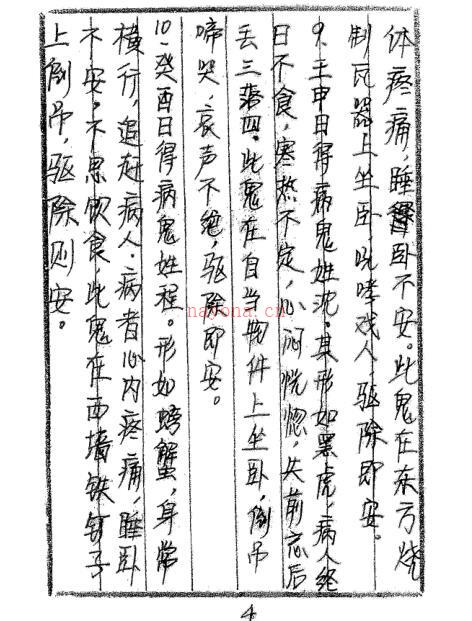 体疼痛，睡卧不安。此鬼在东方烧
制瓦器上坐卧，吼哮戏人，驱除即安。
9、壬申日得病鬼姓沈。其形如黑虎，病人终
日不食，寒热不定，心闷恍惚，失前忘后
丢三落四。此鬼在自当物件上坐卧，倒吊
啼哭，哀声不绝，驱除即安。
10、癸酉日得病鬼姓程。形如螃蟹，身常
横行，追赶病人。病者心内疼痛，睡卧
不安，不思饮食，此鬼在西墙铁钉子
上倒吊，驱除则安。
nayona.cn
4